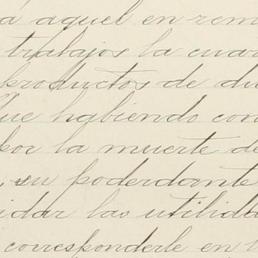 á aquel en rem
trabajos la cuar
productos de di
que habiendo con
por la muerte de
, su poderdante
idar las utilida
corresponderle en